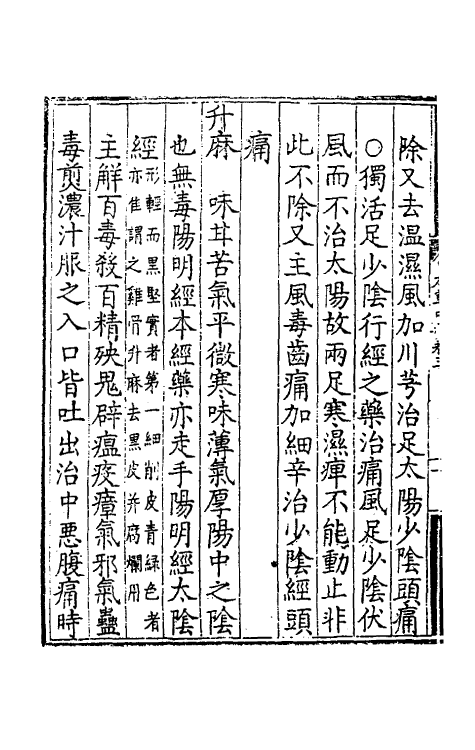 除又去温濕風加川芎治足太陽少陰頭痛
○獨活足少陰行經之藥治痛風足少陰伏
風而不治太陽故兩足寒濕痺不能動止非
此不除又主風毒齒痛加細辛治少陰經頭
痛
升麻　味苷苦氣平微寒味薄氣厚陽中之陰
也無毒陽明經本經藥亦走手陽明經太陰
經形輕而黑堅實者第一細削皮青綠色者
亦佳謂之雞骨升麻去黑皮并腐爛用
主解百毒殺百精殃鬼辟瘟疫瘴氣邪氣蠱
毒煎濃汁服之入口皆吐出治中惡腹痛時